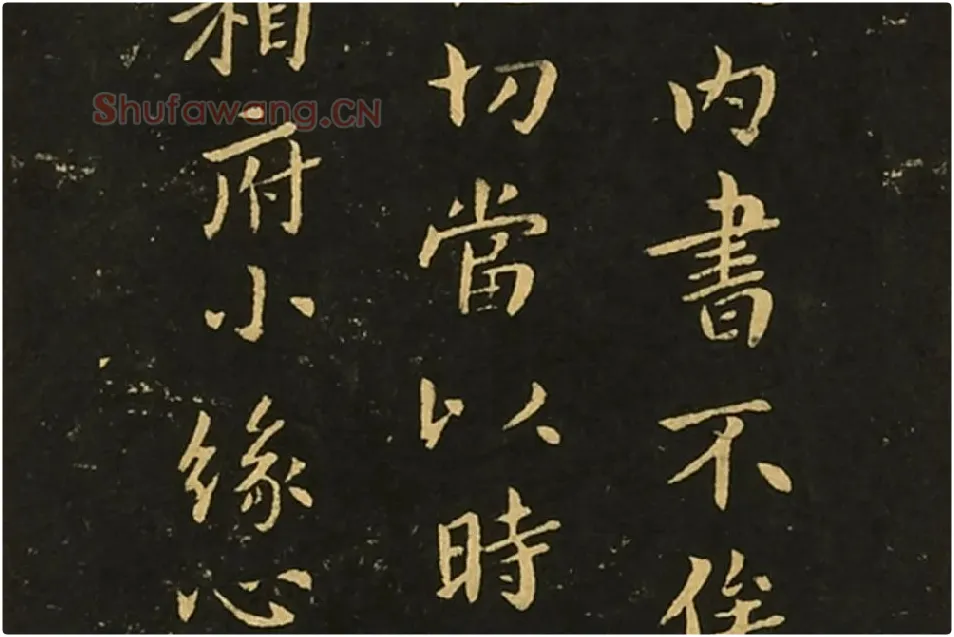 內書不俟
切當以時
相府小緣心
Shufawang.CN